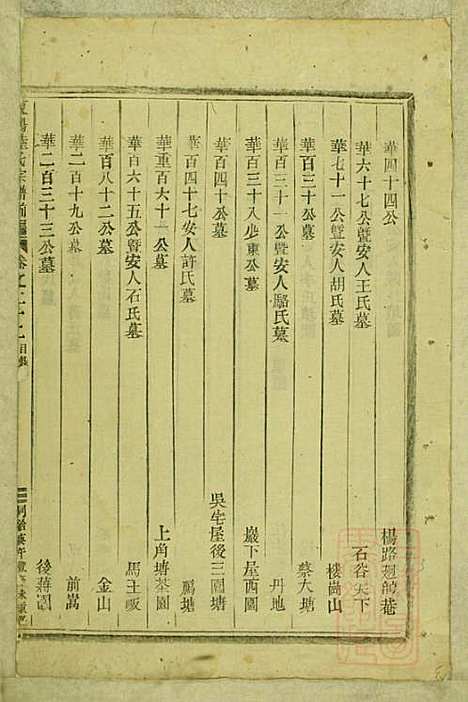 華四十四公 楊路廻師菴
華六十七公暨安人王氏墓 石谷天下
華七十一公暨安人胡氏墓 樓崗山
華百三十公墓 蔡大塘
華百三十一公暨安人駱氏墓 丹地
華百三十八步東公墓 巖下屋西園
華百四十公墓 吳宅屋後三園塘
華百四十七安人許氏墓 塘
華重百六十一公墓 上角塘茶園
華百六十五公暨安人石氏墓 馬王畈
華百八十二公墓 金山
華二百十九公墓 前嵩
華二百三十三公墓 後蔣園
氏宗譜 卷之二十 目錄